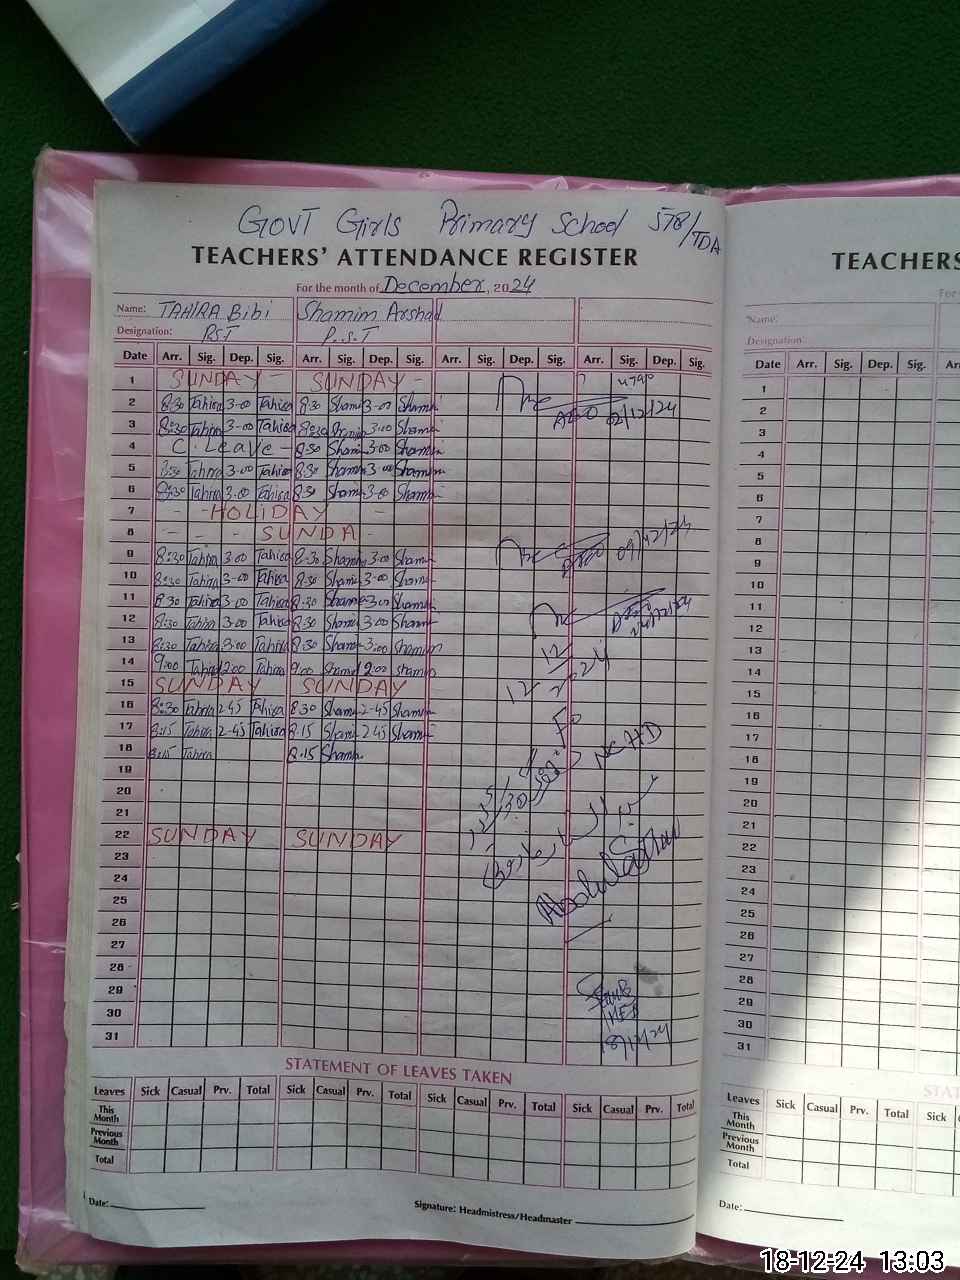 GOVT Girls Primary School 578/TDA
TEACHERS' ATTENDANCE REGISTER
For the month of December, 2024
Name: TAHIRA Bibi Shamim Arshad
Designation: PST P.S.T
Date Arr. Sig. Dep. Sig. Arr. Sig. Dep. Sig. Arr. Sig. Dep. Sig. Arr. Sig. Dep. Sig.
1 SUNDAY - SUNDAY -
2 8:30 Tahira 3-00 Tahira 8:30 Shamim 3-00 Shamim
3 8:30 Tahira 3-00 Tahira 8:30 Shamim 3:00 Shamim
4 C. Leave - 8:30 Shamim 3-00 Shamim
5 8:30 Tahira 3-00 Tahira 8:30 Shamim 3-00 Shamim
6 8:30 Tahira 3.00 Tahira 8:30 Shamim 3-00 Shamim
7 - - HOLIDAY -
8 - - - SUNDA -
9 8:30 Tahira 3.00 Tahira 8:30 Shamim 3.00 Shamim
10 8:30 Tahira 3-00 Tahira 8:30 Shamim 3-00 Shamim
11 8:30 Tahira 3-00 Tahira 8:30 Shamim 3-00 Shamim
12 8:30 Tahira 3.00 Tahira 8:30 Shamim 3.00 Shamim
13 8:30 Tahira 3:00 Tahira 8:30 Shamim 3:00 Shamim
14 9:00 Tahira 2:00 Tahira 9:00 Shamim 2:00 Shamim
15 SUNDAY SUNDAY
16 8:30 Tahira 2-45 Tahira 8:30 Shamim 2-45 Shamim
17 8:15 Tahira 2-45 Tahira 8.15 Shamim 2-45 Shamim
18 8:15 Tahira 8.15 Shamim
19
20
21
22 SUNDAY SUNDAY
23
24
25
26
27
28
29
30
31
AEO 02/12/24
09/12/24
12
12 2024
NCHD
18/12/24
STATEMENT OF LEAVES TAKEN
Leaves Sick Casual Prv. Total Sick Casual Prv. Total Sick Casual Prv. Total Sick Casual Prv. Total
This Month
Previous Month
Total
Date:
Signature: Headmistress/Headmaster
TEACHERS
For
Name:
Designation:
Date Arr. Sig. Dep. Sig.
1
2
3
4
5
6
7
8
9
10
11
12
13
14
15
16
17
18
19
20
21
22
23
24
25
26
27
28
29
30
31
STAT
Leaves Sick Casual Prv. Total Sick
This Month
Previous Month
Total
Date:
18-12-24 13:03